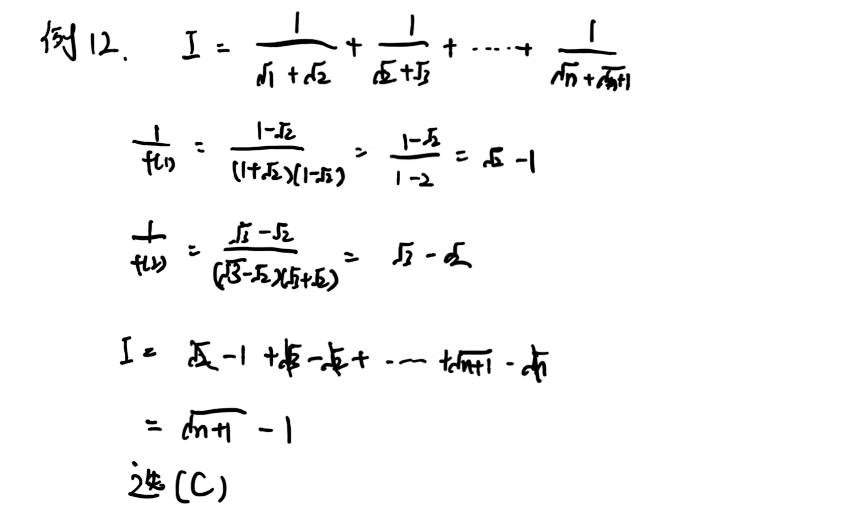 例12. I = 1/(√1+√2) + 1/(√2+√3) + ····· + 1/(√n+√(n+1))
1/f(1) = (1-√2)/((1+√2)(1-√2)) = (1-√2)/(1-2) = √2 - 1
1/f(2) = (√3-√2)/((√3-√2)(√3+√2)) = √3 - √2
I = √2 - 1 + √3 - √2 + ····· + √(n+1) - √n
= √(n+1) - 1
选(C)